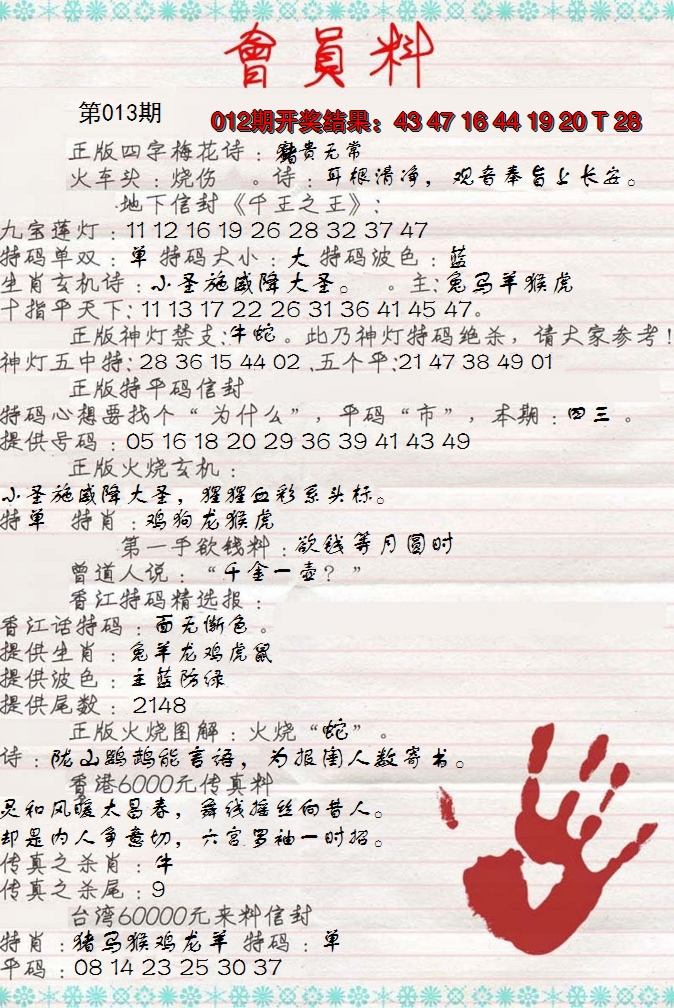 會員料
第013期
012期开奖结果：43 47 16 44 19 20 T 28
正版四字梅花诗：贵无常
火车头：烧伤 。诗：耳根清净，观音奉旨上长安。
地下信封《千王之王》：
九宝莲灯：11 12 16 19 26 28 32 37 47
特码单双：单 特码大小：大 特码波色：蓝
生肖玄机诗：小圣施威降大圣。 。主：兔马羊猴虎
十指平天下：11 13 17 22 26 31 36 41 45 47。
正版神灯禁支：牛蛇。此乃神灯特码绝杀，请大家参考！
神灯五中特：28 36 15 44 02 .五个平：21 47 38 49 01
正版特平码信封
特码心想要找个“为什么”，平码“市”，本期：四三。
提供号码：05 16 18 20 29 36 39 41 43 49
正版火烧玄机：
小圣施威降大圣，猩猩血彩系头标。
特单 特肖：鸡狗龙猴虎
第一手欲钱料：欲钱等月圆时
曾道人说：“千金一壶？”
香江特码精选报：
香江话特码：面无惭色。
提供生肖：兔羊龙鸡虎鼠
提供波色：主蓝防绿
提供尾数：2148
正版火烧图解：火烧“蛇”。
诗：陇山鹦鹉能言语，为报闺人数寄书。
香港6000元传真料
灵和风暖太昌春，舞线摇丝向昔人。
却是内人争意切，六宫罗袖一时招。
传真之杀肖：牛
传真之杀尾：9
台湾60000元来料信封
特肖：猪马猴鸡龙羊 特码：单
平码：08 14 23 25 30 37